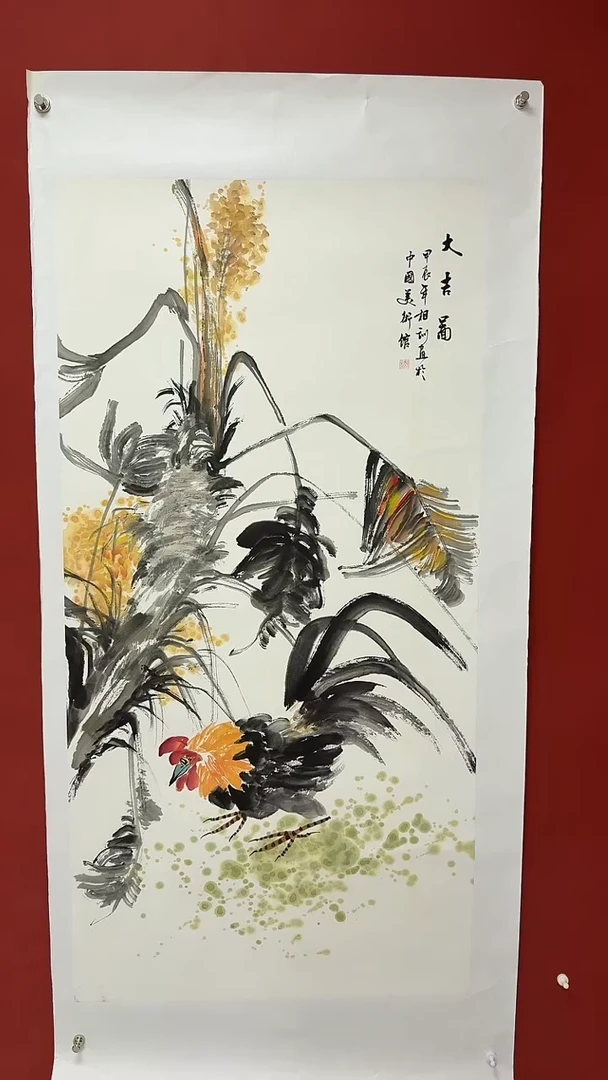 大吉圖
甲辰年相訓画於
中國美術館